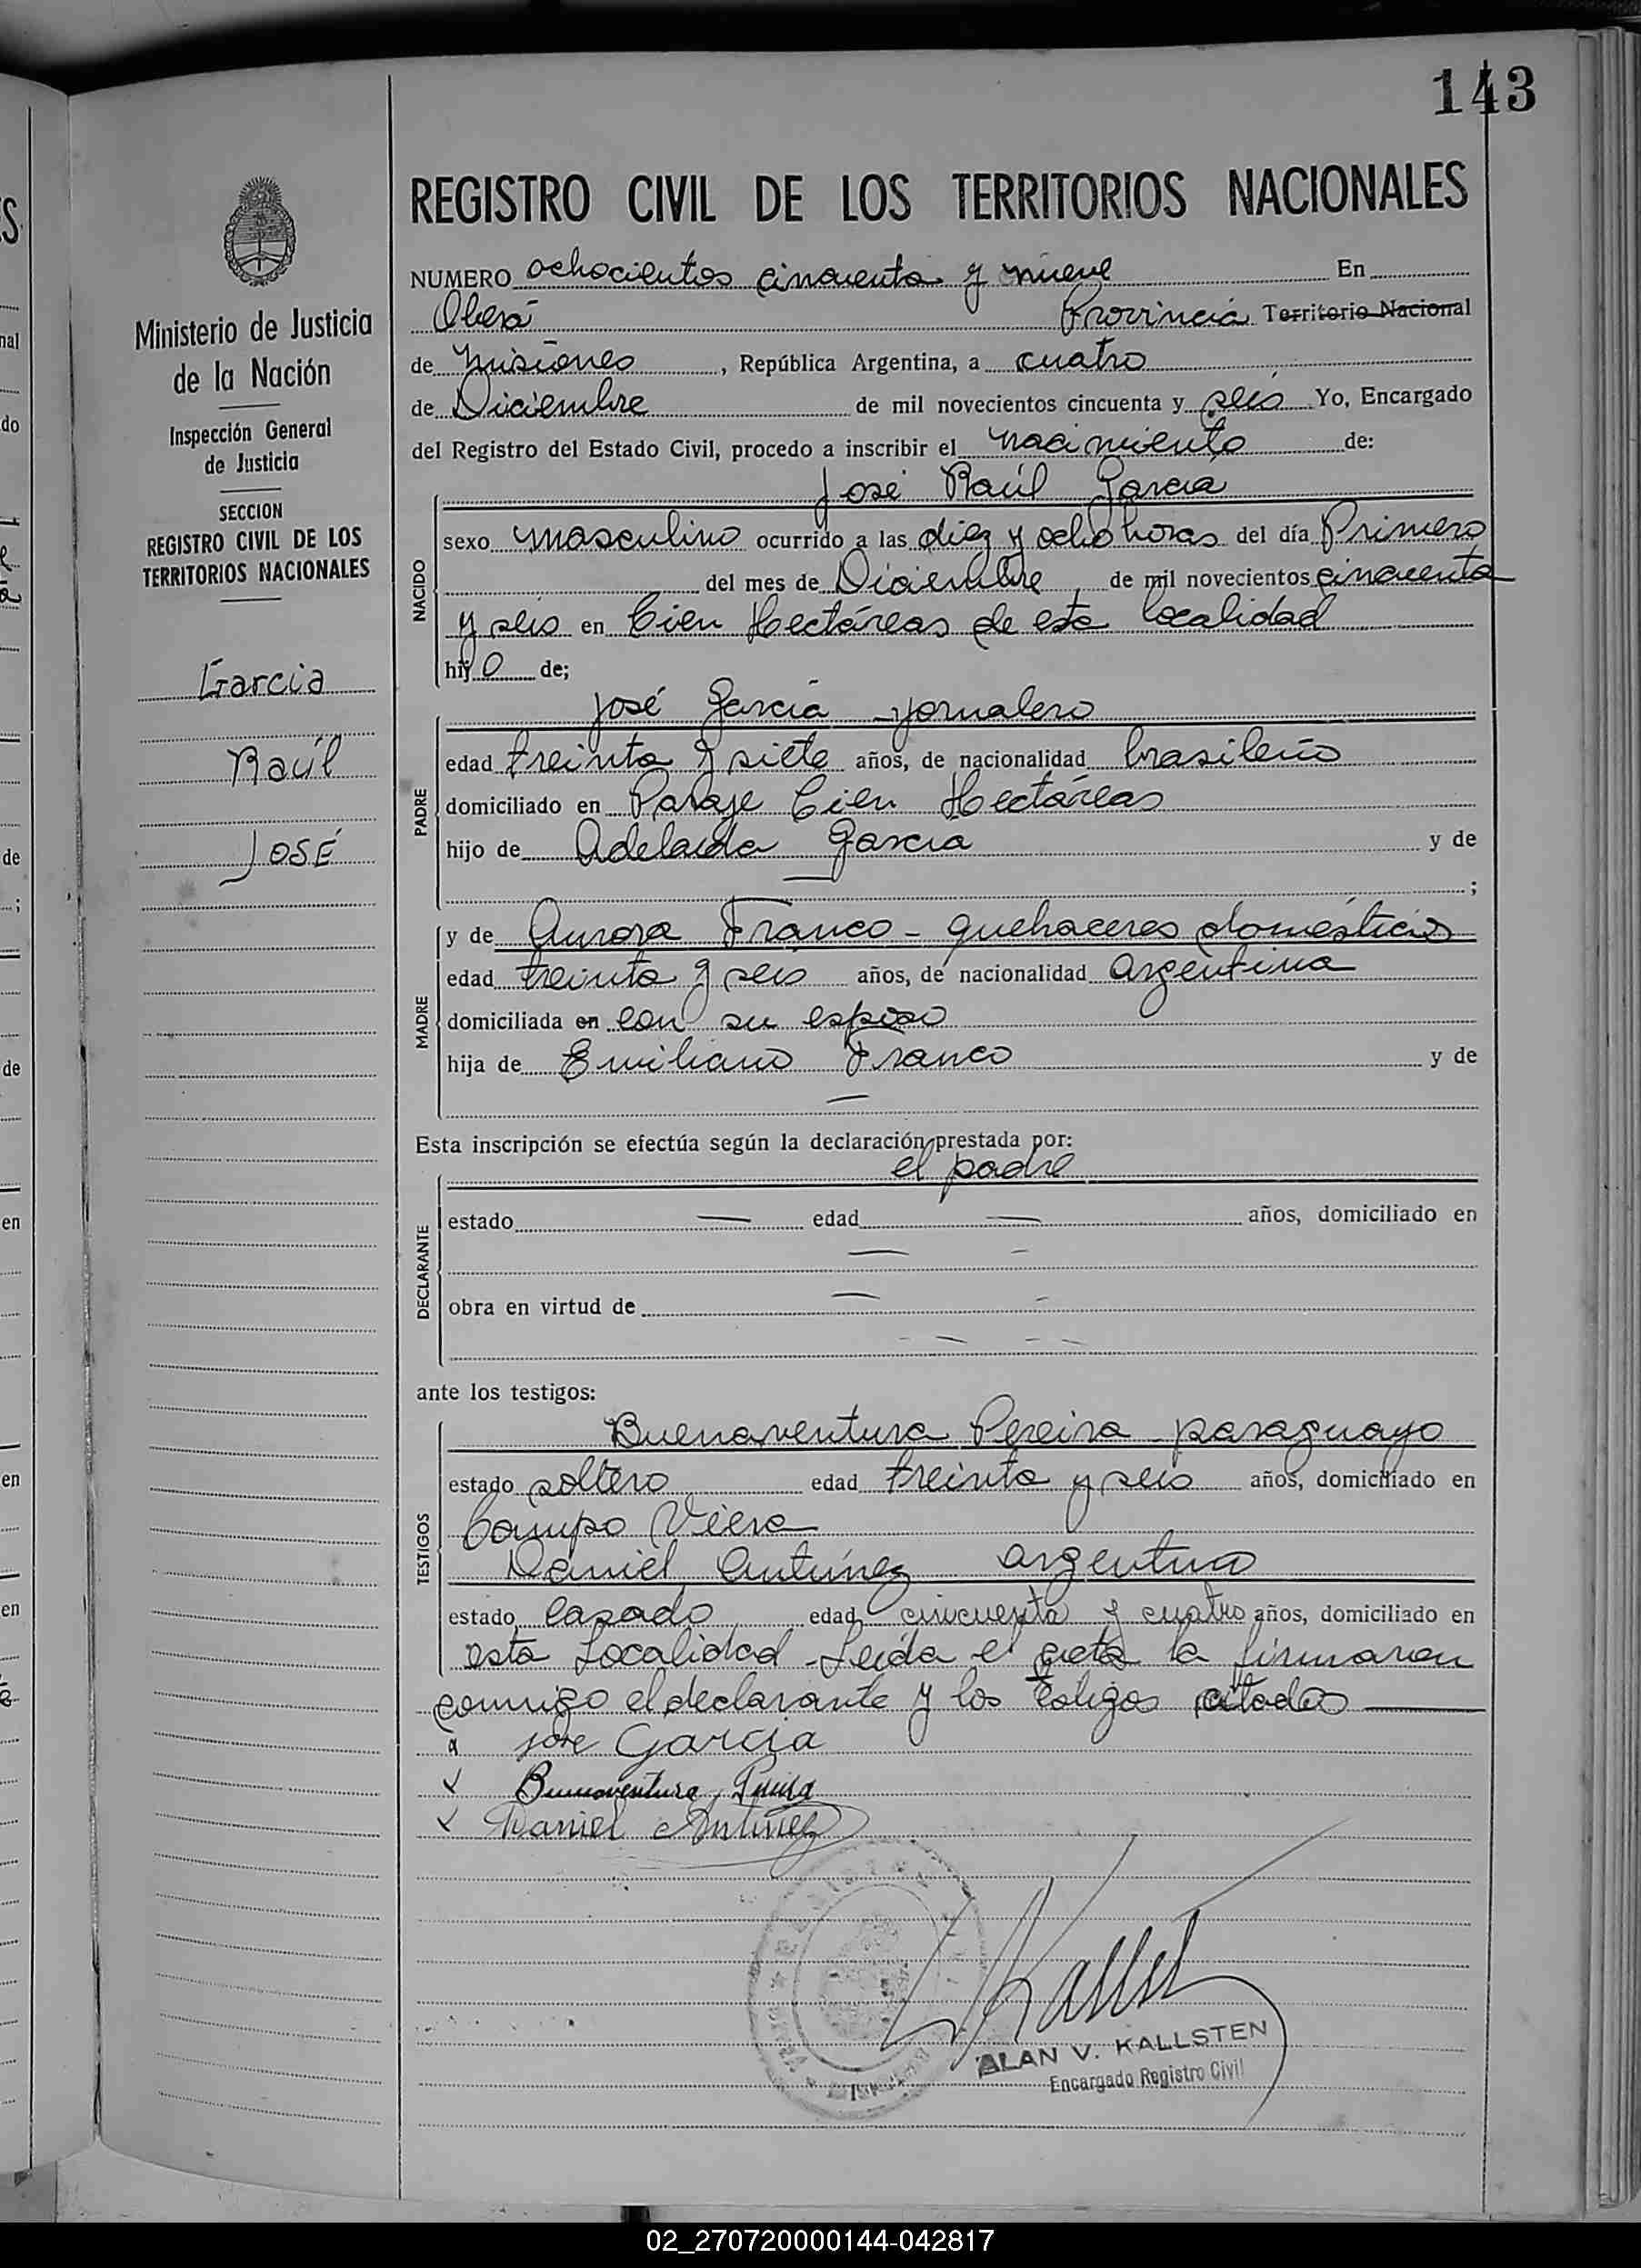 143
REGISTRO CIVIL DE LOS TERRITORIOS NACIONALES
Ministerio de Justicia
de la Nación
Inspección General
de Justicia
SECCION
REGISTRO CIVIL DE LOS
TERRITORIOS NACIONALES
Garcia
Raúl
JOSÉ
NUMERO ochocientos cincuenta y nueve En
Oberá Provincia Territorio Nacional
de Misiones, República Argentina, a cuatro
de Diciembre de mil novecientos cincuenta y seis Yo, Encargado
del Registro del Estado Civil, procedo a inscribir el nacimiento de:
José Raúl García
NACIDO
sexo masculino ocurrido a las diez y ocho horas del día Primero
del mes de Diciembre de mil novecientos cincuenta
y seis en Cien Hectáreas de esta localidad
hijo de;
PADRE
José García jornalero
edad treinta y siete años, de nacionalidad brasileño
domiciliado en Paraje Cien Hectáreas
hijo de Adelaida García y de
;
MADRE
y de Aurora Franco - quehaceres domésticos
edad treinta y seis años, de nacionalidad argentina
domiciliada en con su esposo
hija de Emiliano Franco y de
Esta inscripción se efectúa según la declaración prestada por:
el padre
DECLARANTE
estado — edad — años, domiciliado en
obra en virtud de
ante los testigos:
TESTIGOS
Buenaventura Pereira paraguayo
estado soltero edad treinta y seis años, domiciliado en
Campo Viera
Daniel Antúnez argentino
estado casado edad cincuenta y cuatro años, domiciliado en
esta Localidad - Leída el acta la firmaron
conmigo el declarante y los testigos citados
Jose Garcia
x Buenaventura Pereira
x Daniel Antunez
ALAN V. KALLSTEN
Encargado Registro Civil
02_270720000144-042817